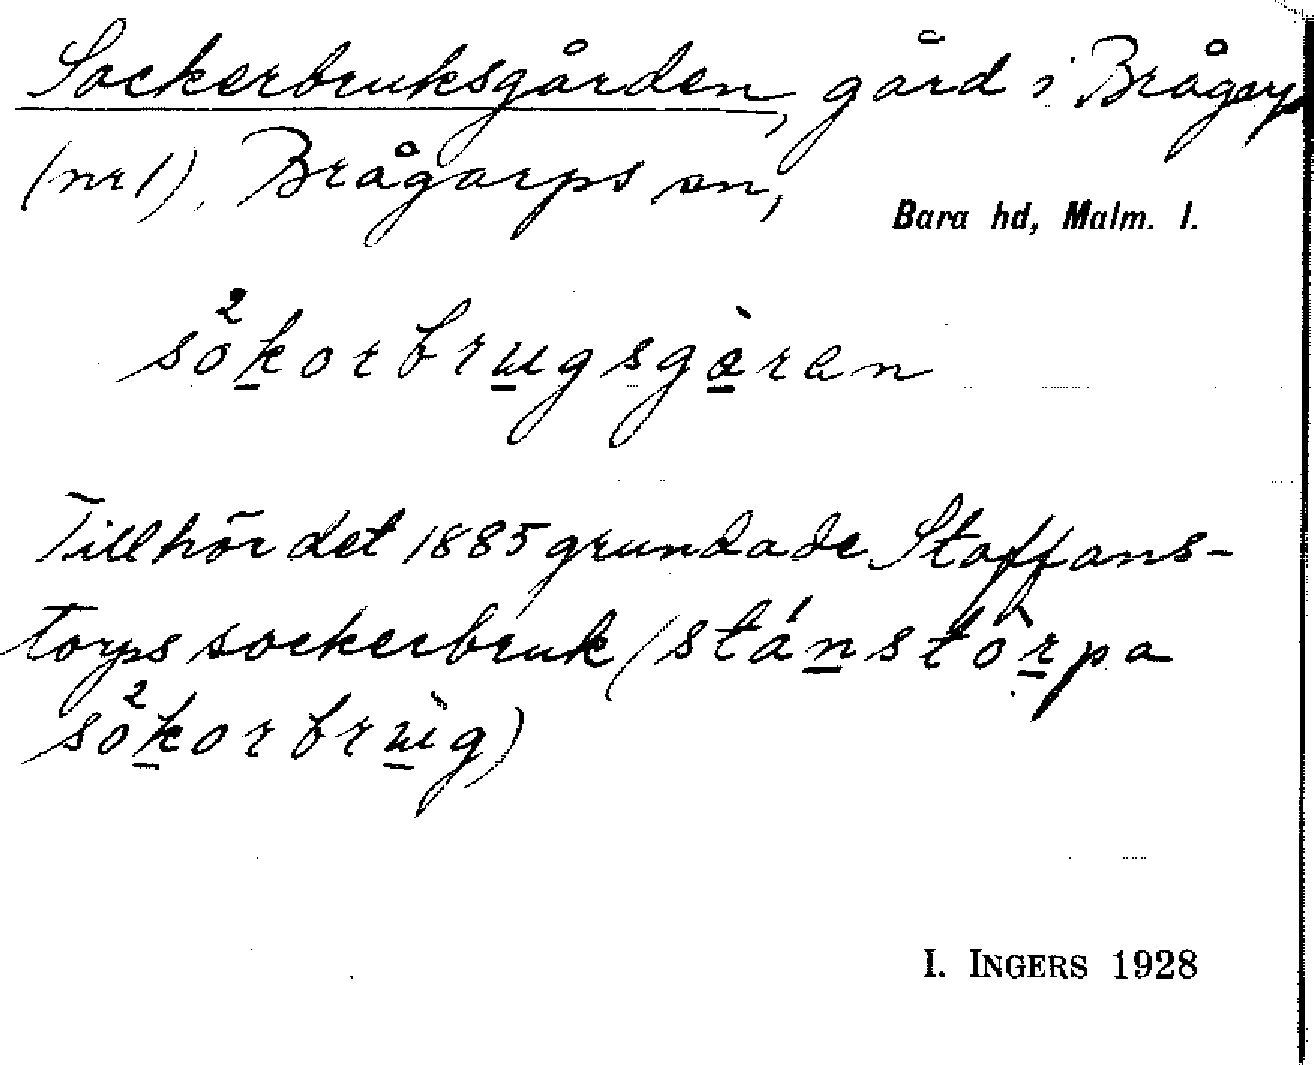 Sockerbruksgården, gård i Brågarp
(nr 1), Brågarps sn,
Bara hd, Malm. l.
sò²korbrugsgàren
Tillhör det 1885 grundade Staffans-
torps sockerbruk (stánstòrpa
sò²korbrùg)
I. INGERS 1928